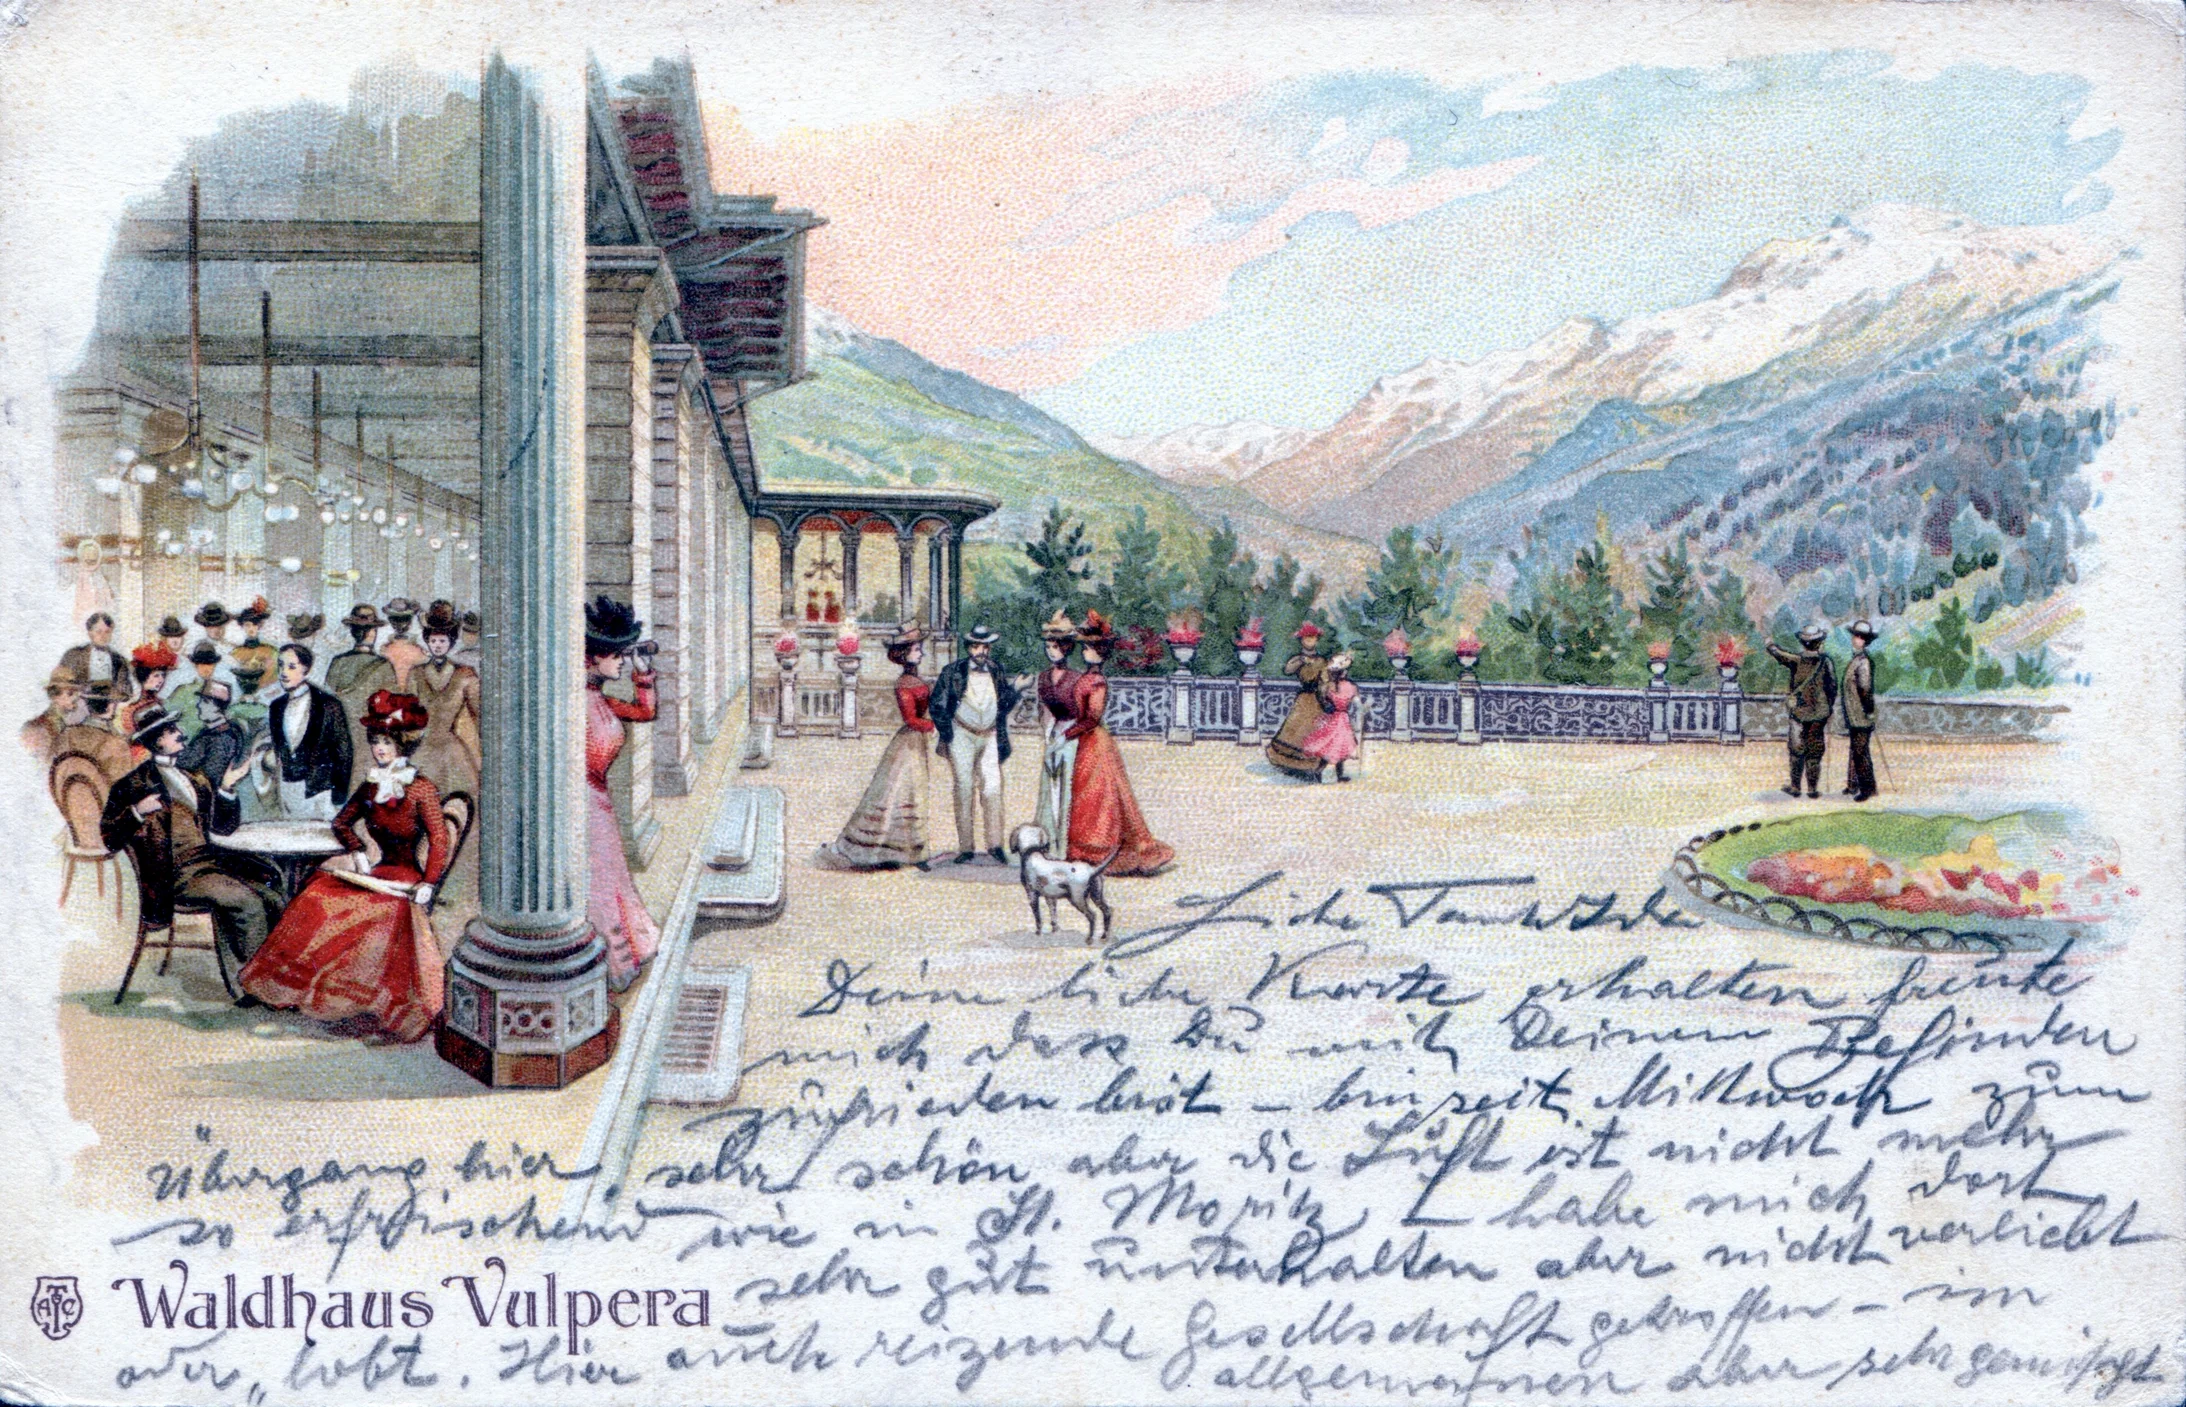 Liebe Tante
Deine liebe Karte erhalten freute
mich dass Du mit Deinem Befinden
zufrieden bist – bin seit Mittwoch zum
Übergang hier, sehr schön aber die Luft ist nicht mehr
so erfrischend wie in St. Moritz – habe mich dort
sehr gut unterhalten aber nicht verliebt
oder „lobt. Hier auch reizende Gesellschaft getroffen – im
allgemeinen aber sehr gemischt
ATGC
Waldhaus Vulpera